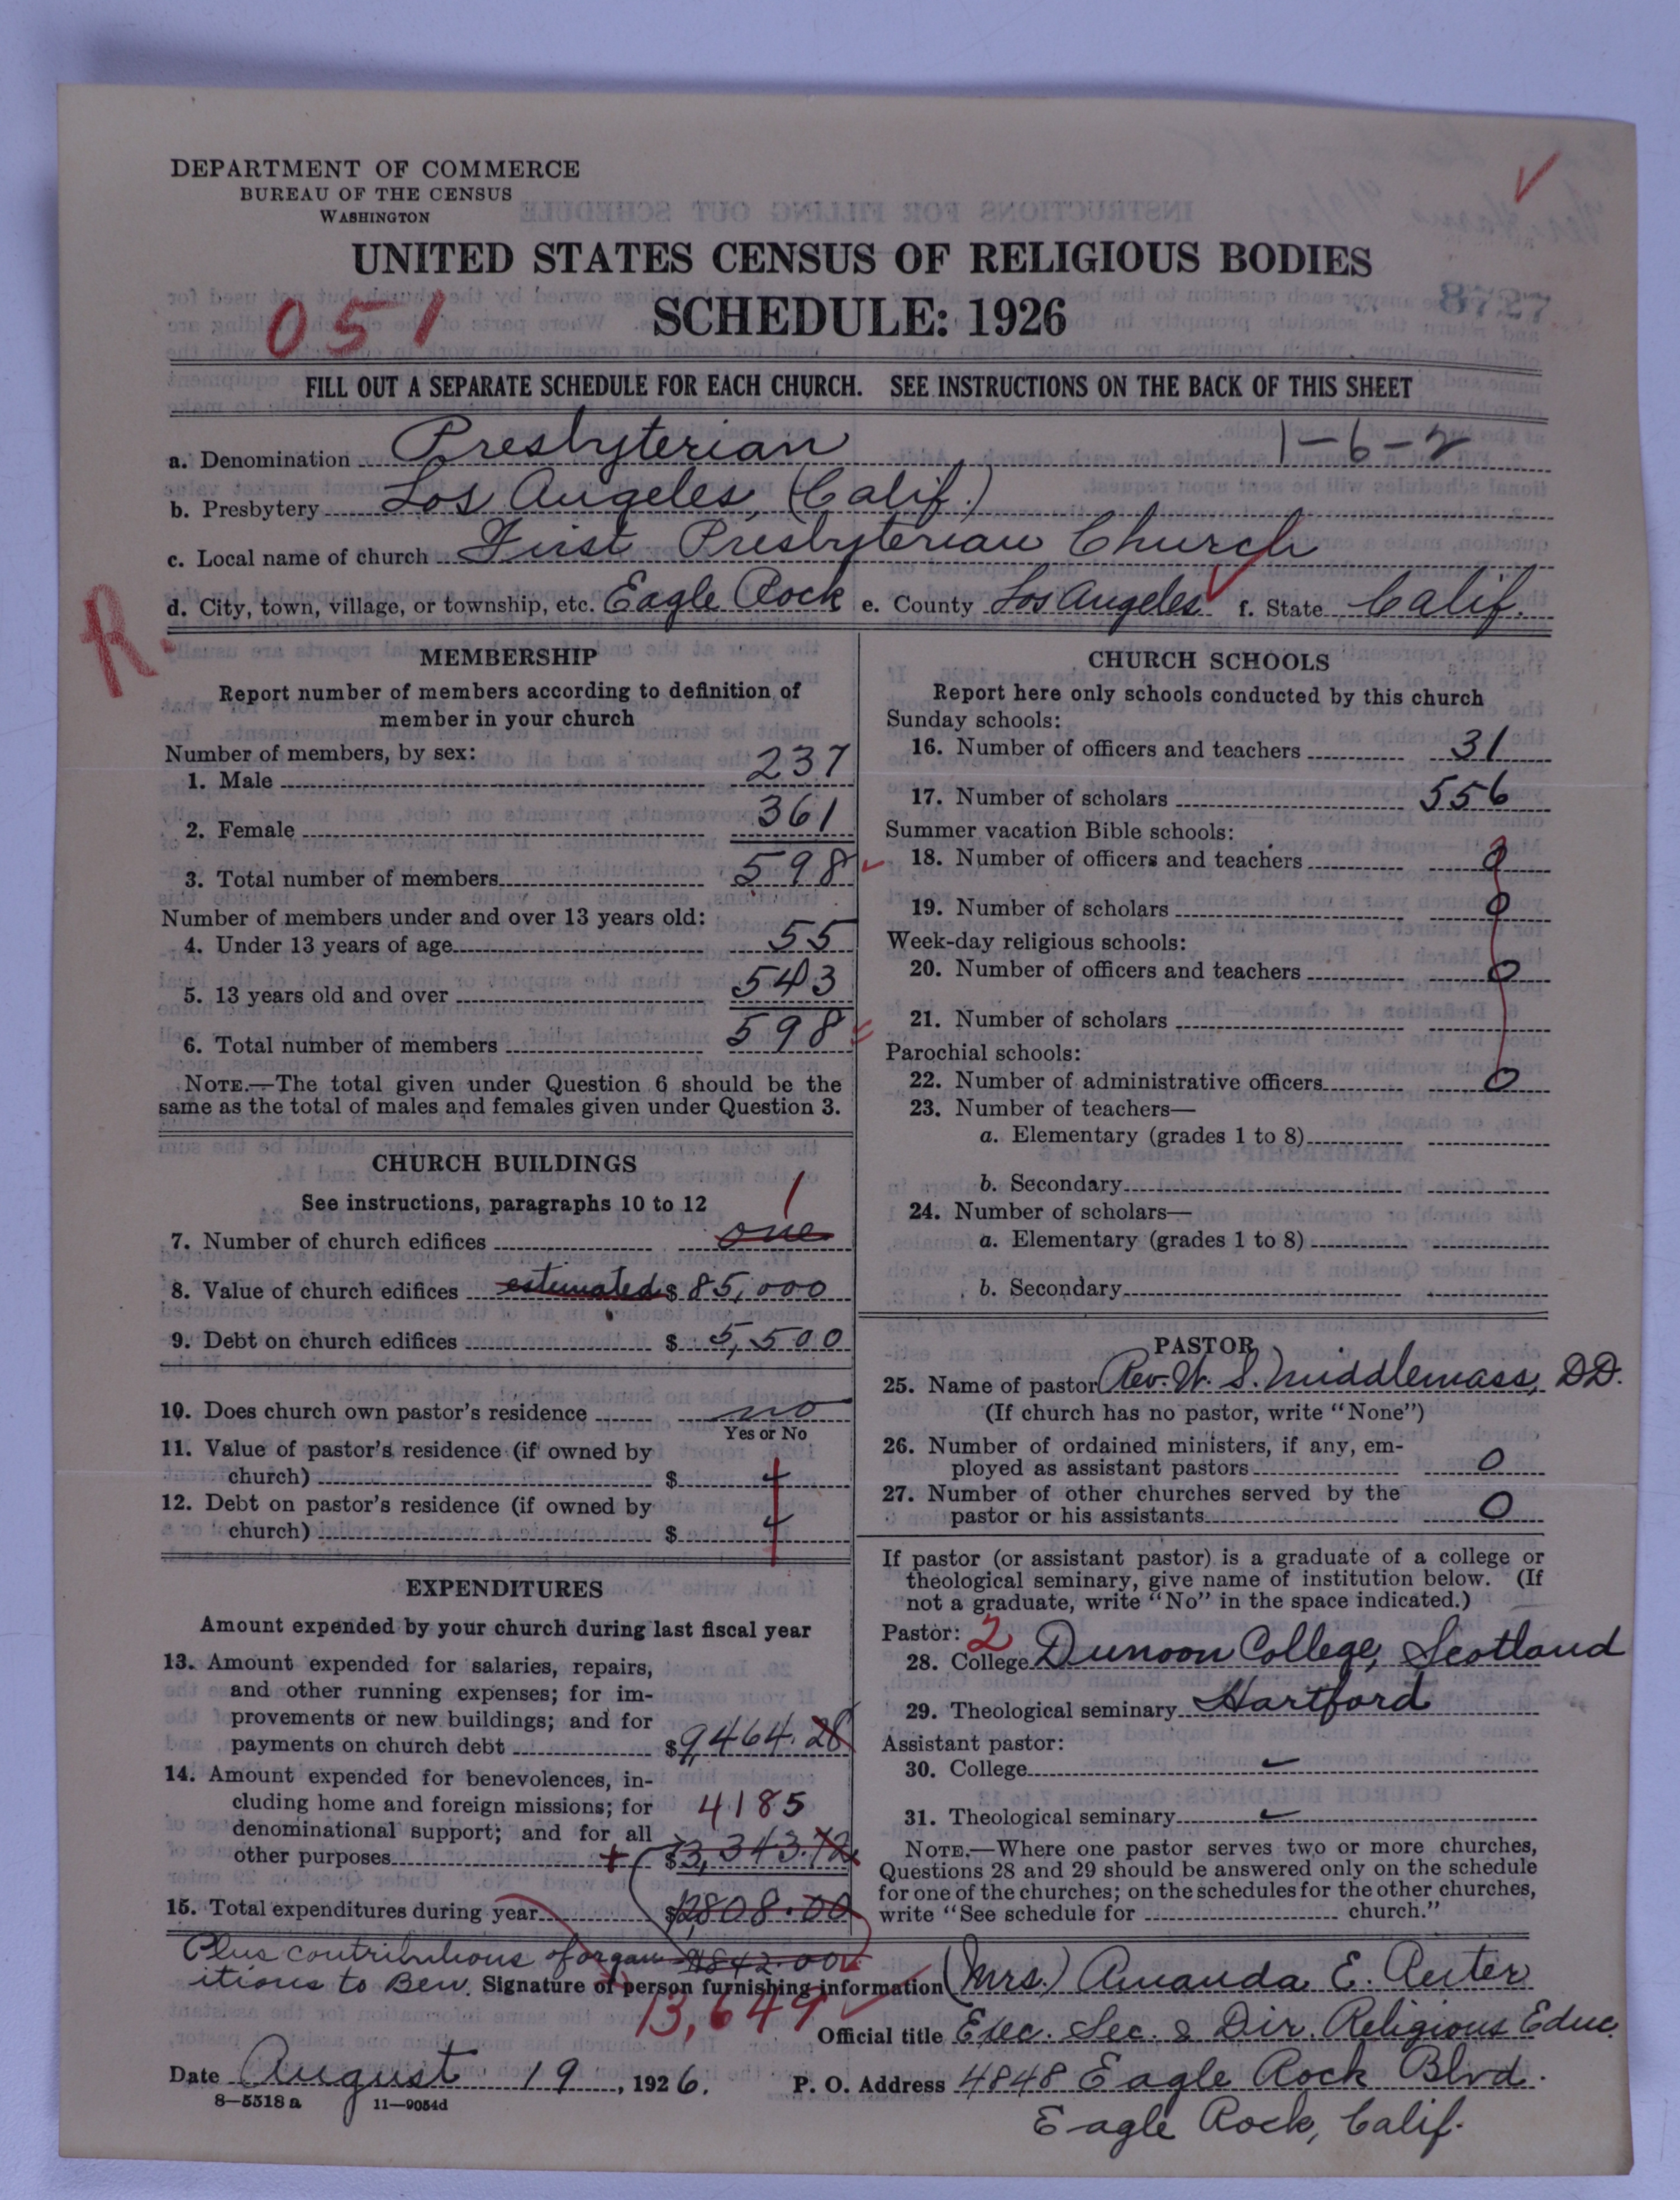 DEPARTMENT OF COMMERCE
BUREAU OF THE CENSUS
WASHINGTON
UNITED STATES CENSUS OF RELIGIOUS BODIES
SCHEDULE: 1926
051
8727
FILL OUT A SEPARATE SCHEDULE FOR EACH CHURCH. SEE INSTRUCTIONS ON THE BACK OF THIS SHEET
a. Denomination Presbyterian 1-6-2
b. Presbytery Los Angeles, (Calif.)
c. Local name of church First Presbyterian Church
d. City, town, village, or township, etc. Eagle Rock e. County Los Angeles f. State Calif.
R.
MEMBERSHIP
Report number of members according to definition of
member in your church
Number of members, by sex:
1. Male 237
2. Female 361
3. Total number of members 598
Number of members under and over 13 years old:
4. Under 13 years of age 55
5. 13 years old and over 543
6. Total number of members 598
NOTE.—The total given under Question 6 should be the
same as the total of males and females given under Question 3.
CHURCH BUILDINGS
See instructions, paragraphs 10 to 12
1
7. Number of church edifices one
8. Value of church edifices estimated $ 85,000
9. Debt on church edifices $ 5,500
10. Does church own pastor's residence no
Yes or No
11. Value of pastor's residence (if owned by
church) $
12. Debt on pastor's residence (if owned by
church) $
EXPENDITURES
Amount expended by your church during last fiscal year
13. Amount expended for salaries, repairs,
and other running expenses; for im-
provements or new buildings; and for
payments on church debt $9,464.28
14. Amount expended for benevolences, in-
cluding home and foreign missions; for
4185
denominational support; and for all
other purposes + $3,343.72
15. Total expenditures during year $12808.00
CHURCH SCHOOLS
Report here only schools conducted by this church
Sunday schools:
16. Number of officers and teachers 31
17. Number of scholars 556
Summer vacation Bible schools:
18. Number of officers and teachers 0
19. Number of scholars 0
Week-day religious schools:
20. Number of officers and teachers 0
21. Number of scholars
Parochial schools:
22. Number of administrative officers 0
23. Number of teachers—
a. Elementary (grades 1 to 8)
b. Secondary
24. Number of scholars—
a. Elementary (grades 1 to 8)
b. Secondary
PASTOR
25. Name of pastor Rev. W. S. Middlemass, DD.
(If church has no pastor, write "None")
26. Number of ordained ministers, if any, em-
ployed as assistant pastors 0
27. Number of other churches served by the
pastor or his assistants 0
If pastor (or assistant pastor) is a graduate of a college or
theological seminary, give name of institution below. (If
not a graduate, write "No" in the space indicated.)
Pastor: 2
28. College Dunoon College, Scotland
29. Theological seminary Hartford
Assistant pastor:
30. College
31. Theological seminary
NOTE.—Where one pastor serves two or more churches,
Questions 28 and 29 should be answered only on the schedule
for one of the churches; on the schedules for the other churches,
write "See schedule for church."
Plus contributions of organ- $842.00
itions to Ben. Signature of person furnishing information (Mrs.) Amanda E. Reiter
13,649
Official title Exec. Sec. & Dir. Religious Educ.
Date August 19, 1926. P. O. Address 4848 Eagle Rock Blvd.
8—5518 a 11—9054d
Eagle Rock, Calif.